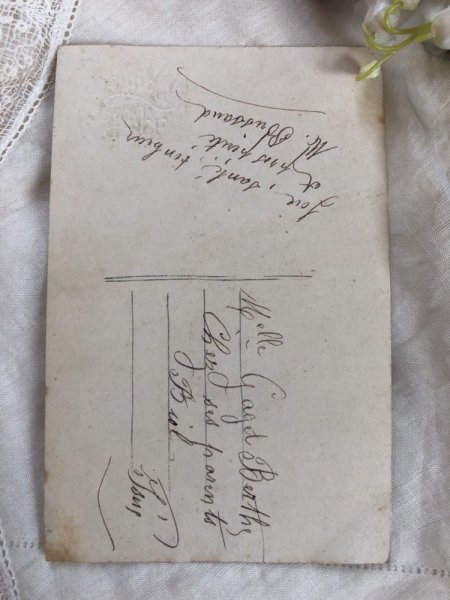 Joie, santé, bonheur
et prospérité
M. Bussaud
Melle Gaget Berthe
Chez ses parents
Biol
Isère